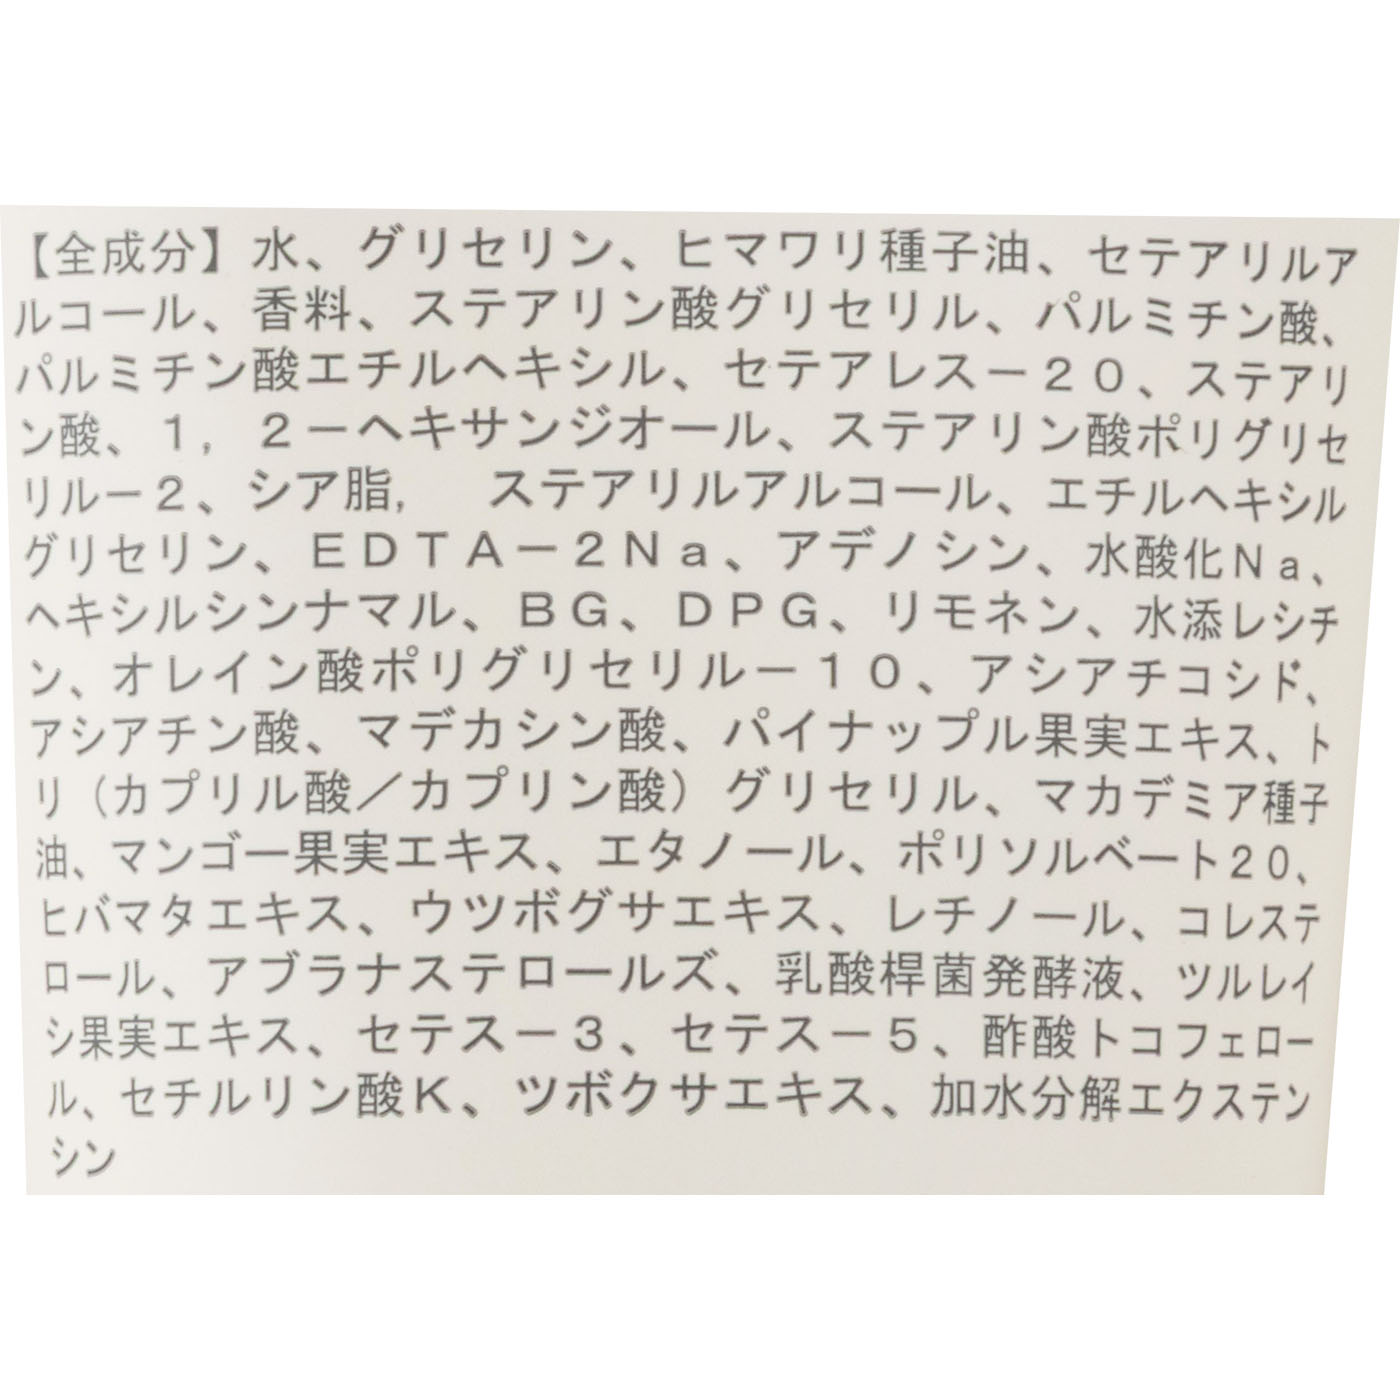 【全成分】水、グリセリン、ヒマワリ種子油、セテアリルア
ルコール、香料、ステアリン酸グリセリル、パルミチン酸、
パルミチン酸エチルヘキシル、セテアレス－２０、ステアリ
ン酸、１，２－ヘキサンジオール、ステアリン酸ポリグリセ
リル－２、シア脂,　ステアリルアルコール、エチルヘキシル
グリセリン、ＥＤＴＡ－２Ｎａ、アデノシン、水酸化Ｎａ、
ヘキシルシンナマル、ＢＧ、ＤＰＧ、リモネン、水添レシチ
ン、オレイン酸ポリグリセリル－１０、アシアチコシド、
アシアチン酸、マデカシン酸、パイナップル果実エキス、ト
リ（カプリル酸／カプリン酸）グリセリル、マカデミア種子
油、マンゴー果実エキス、エタノール、ポリソルベート２０、
ヒバマタエキス、ウツボグサエキス、レチノール、コレステ
ロール、アブラナステロールズ、乳酸桿菌発酵液、ツルレイ
シ果実エキス、セテス－３、セテス－５、酢酸トコフェロー
ル、セチルリン酸Ｋ、ツボクサエキス、加水分解エクステン
シン